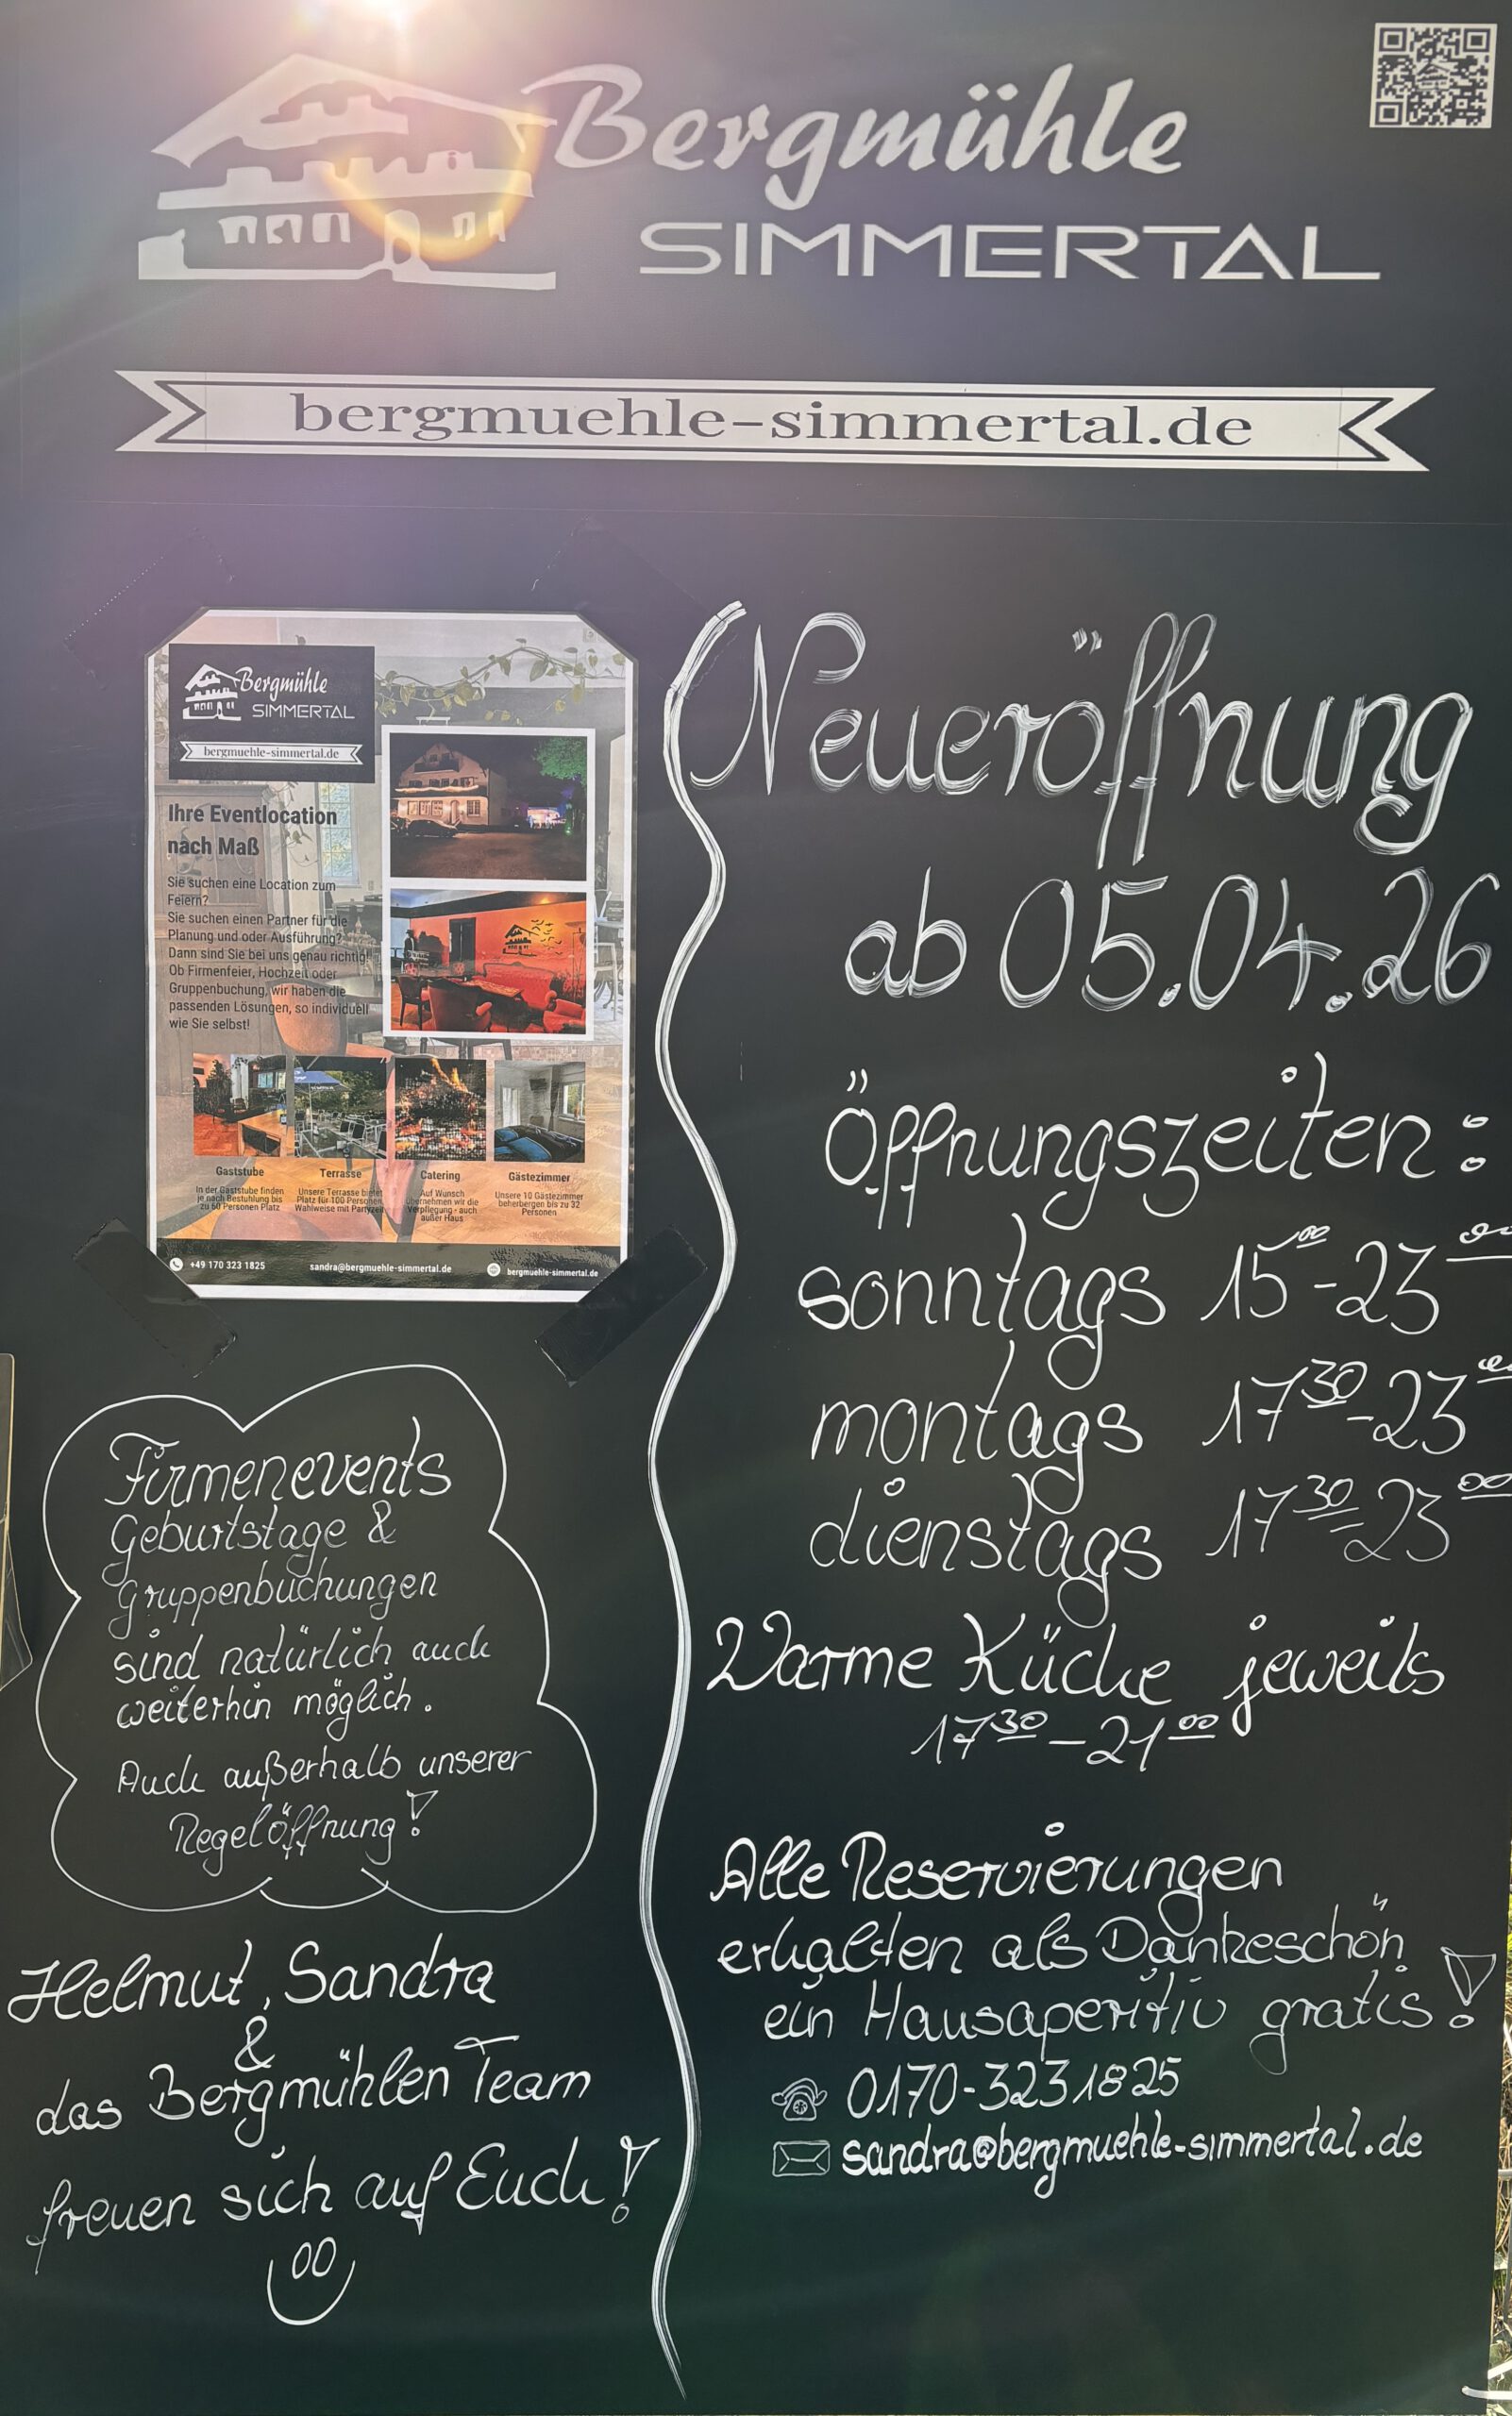 Bergmühle
SIMMERTAL
bergmuehle-simmertal.de
Bergmühle
SIMMERTAL
bergmuehle-simmertal.de
Ihre Eventlocation
nach Maß
Sie suchen eine Location zum
Feiern?
Sie suchen einen Partner für die
Planung und oder Ausführung?
Dann sind Sie bei uns genau richtig!
Ob Firmenfeier, Hochzeit oder
Gruppenbuchung, wir haben die
passenden Lösungen, so individuell
wie Sie selbst!
Gaststube
In der Gaststube finden
je nach Bestuhlung bis
zu 60 Personen Platz
Terrasse
Unsere Terrasse bietet
Platz für 100 Personen,
Wahlweise mit Partyzelt
Catering
Auf Wunsch
übernehmen wir die
Verpflegung - auch
außer Haus
Gästezimmer
Unsere 10 Gästezimmer
beherbergen bis zu 32
Personen
+49 170 323 1825
sandra@bergmuehle-simmertal.de
bergmuehle-simmertal.de
Firmenevents
Geburtstage &
Gruppenbuchungen
sind natürlich auch
weiterhin möglich.
Auch außerhalb unserer
Regelöffnung!
Helmut, Sandra
&
das Bergmühlen Team
freuen sich auf Euch!
Neueröffnung
ab 05.04.26
Öffnungszeiten:
sonntags 15⁰⁰-23⁰⁰
montags 17³⁰-23⁰⁰
dienstags 17³⁰-23⁰⁰
Warme Küche jeweils
17³⁰-21⁰⁰
Alle Reservierungen
erhalten als Dankeschön
ein Hausaperitiv gratis!
0170-3231825
sandra@bergmuehle-simmertal.de